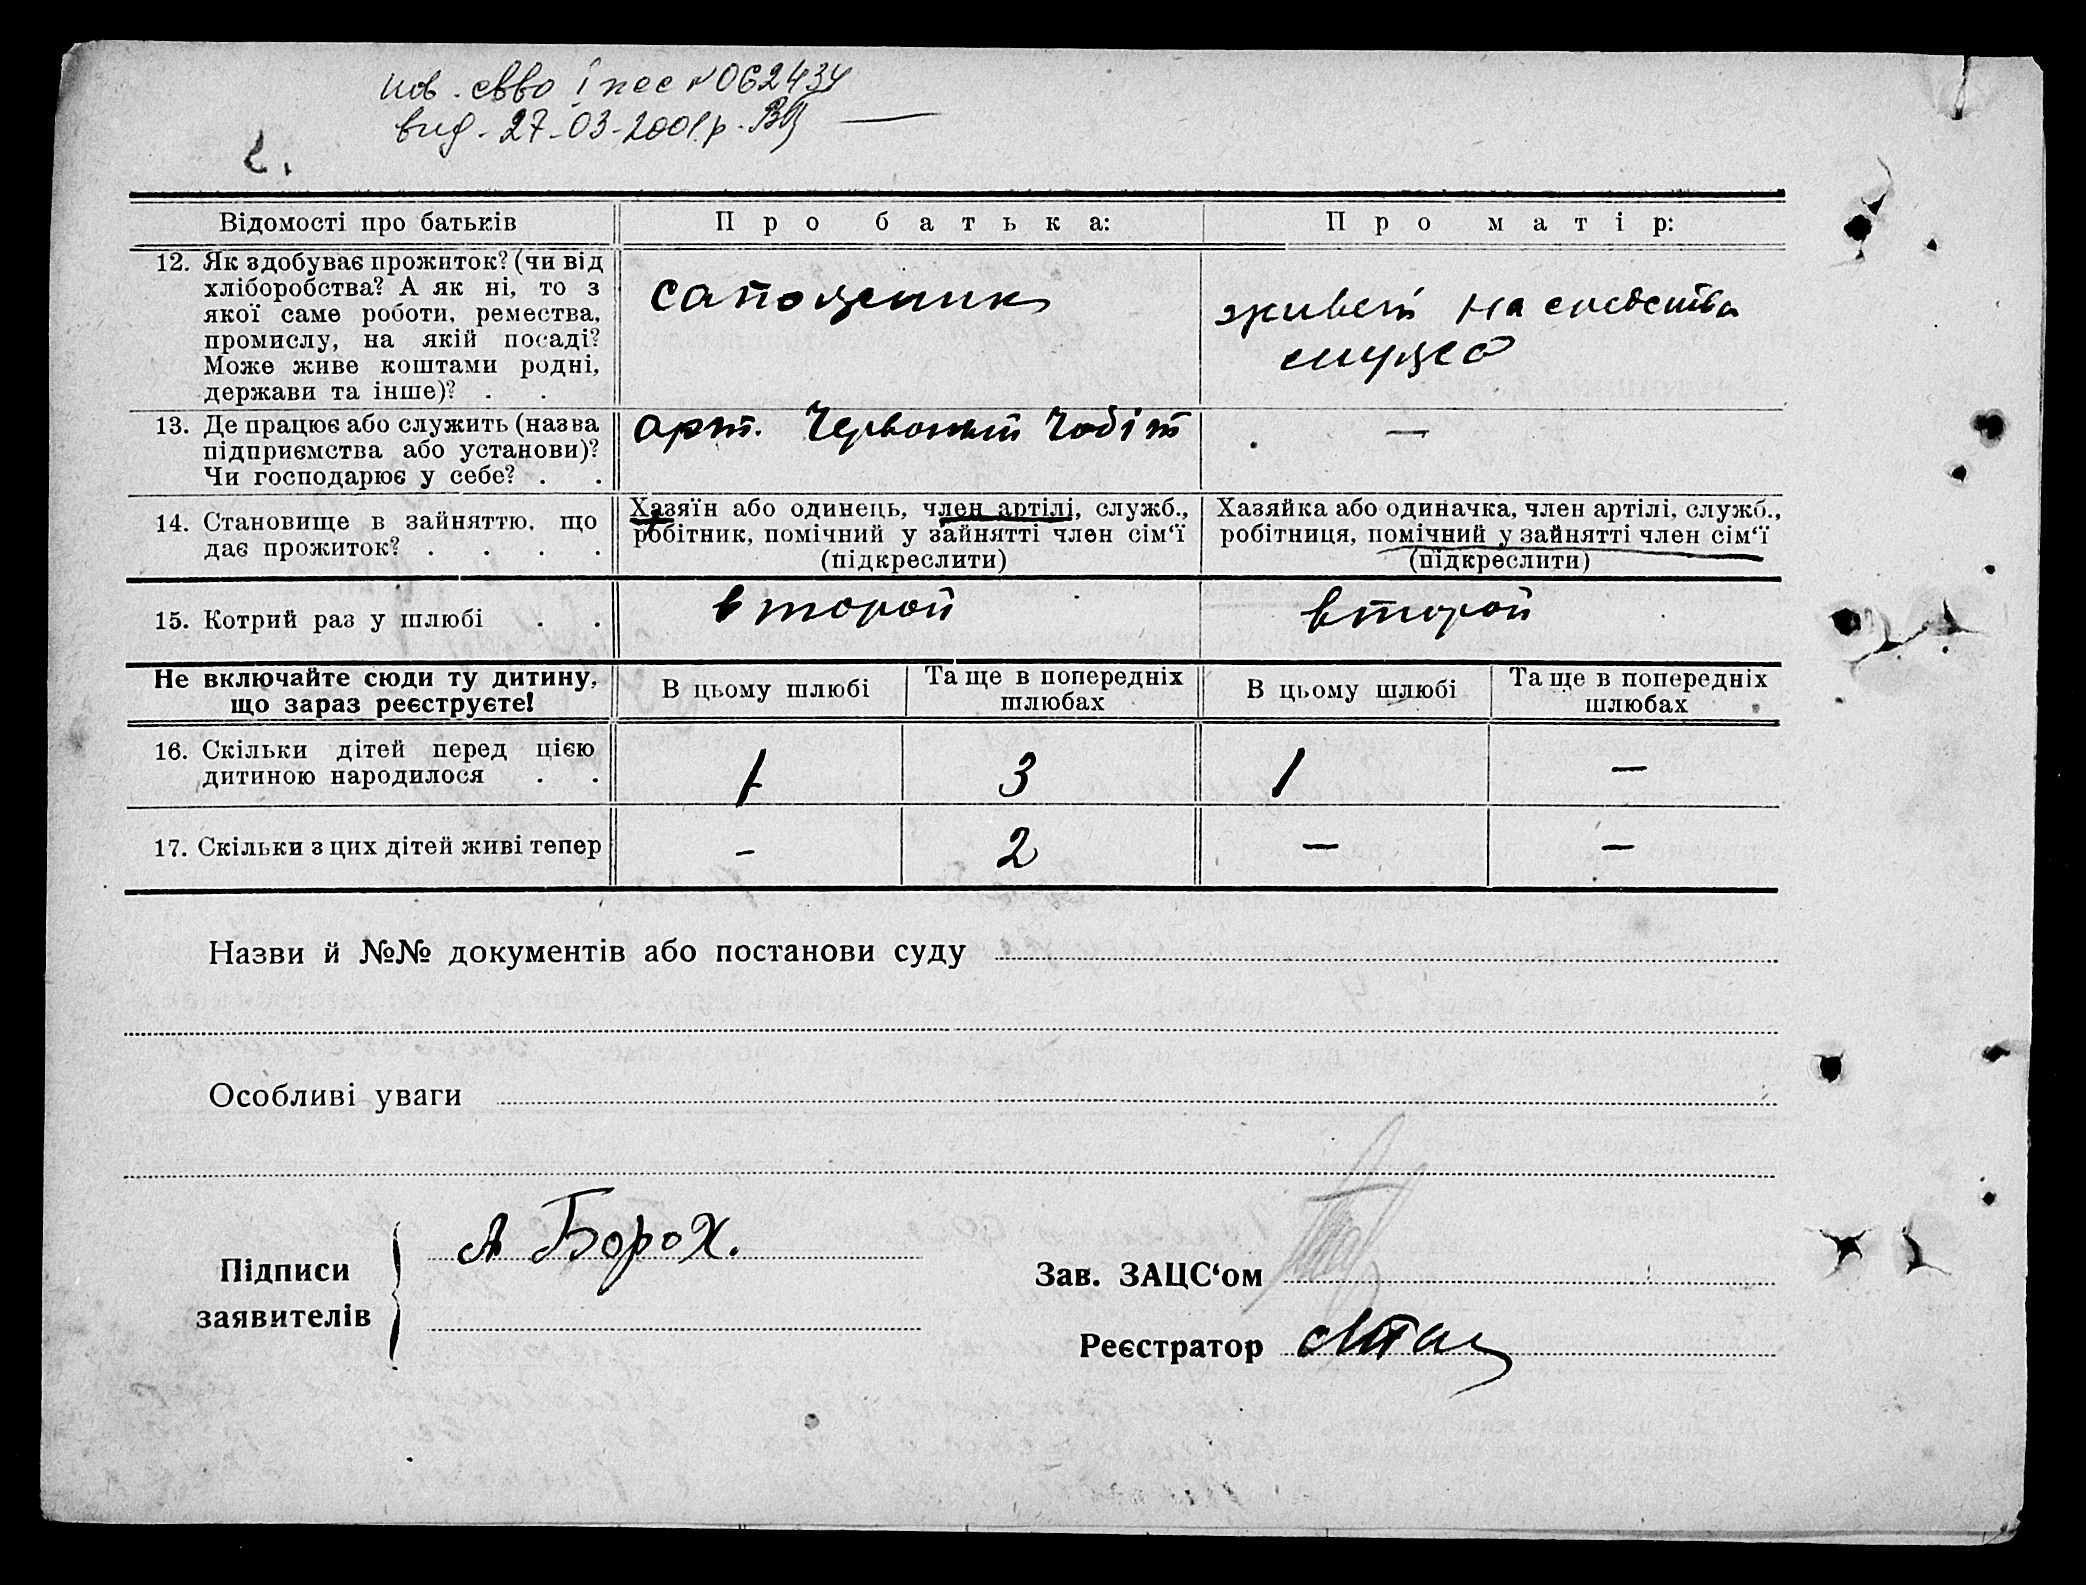 пов. свво І пее № 062434
вид. 27-03-2001 р.
Відомості про батьків
Про батька:
Про матір:
12. Як здобуває прожиток? (чи від
хліборобства? А як ні, то з
якої саме роботи, ремества,
промислу, на якій посаді?
Може живе коштами родні,
держави та інше)? . .
сапожник
живет на средства
мужа
13. Де працює або служить (назва
підприємства або установи)?
Чи господарює у себе? . .
арт. Червоний Чобіт
—
14. Становище в зайняттю, що
дає прожиток? . . . .
Хазяїн або одинець, член артілі, служб.,
робітник, помічний у зайнятті член сім‘ї
(підкреслити)
Хазяйка або одиначка, член артілі, служб.,
робітниця, помічний у зайнятті член сім‘ї
(підкреслити)
15. Котрий раз у шлюбі . .
второй
второй
Не включайте сюди ту дитину,
що зараз реєструєте!
В цьому шлюбі
Та ще в попередніх
шлюбах
В цьому шлюбі
Та ще в попередніх
шлюбах
16. Скільки дітей перед цією
дитиною народилося . .
1
3
1
—
17. Скільки з цих дітей живі тепер
-
2
—
—
Назви й №№ документів або постанови суду
Особливі уваги
Підписи
заявителів
А Борох.
Зав. ЗАЦС‘ом
Реєстратор